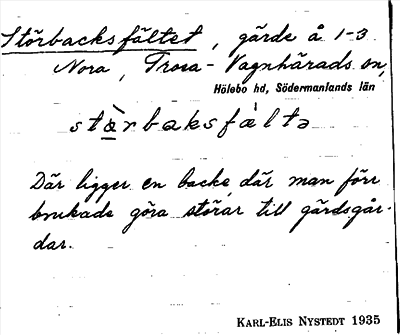 Störbacksfältet, gärde å 1-3
Nora, Trosa-Vagnhärads sn,
Hölebo hd, Södermanlands län
stɑ̀rbaksfàltə
Där ligger en backe där man förr
brukade göra störar till gärdsgår-
dar.
KARL-ELIS NYSTEDT 1935